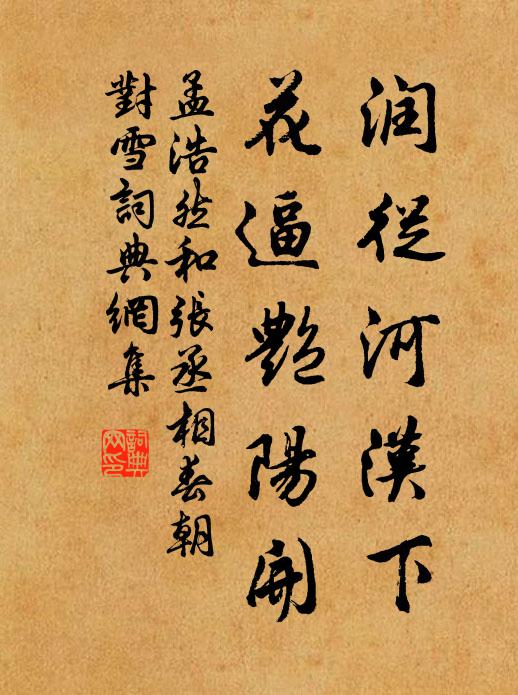 润從河漢下
花逼艷陽開
孟浩然和張丞相春朝
對雪詞典網集
詞典
网印